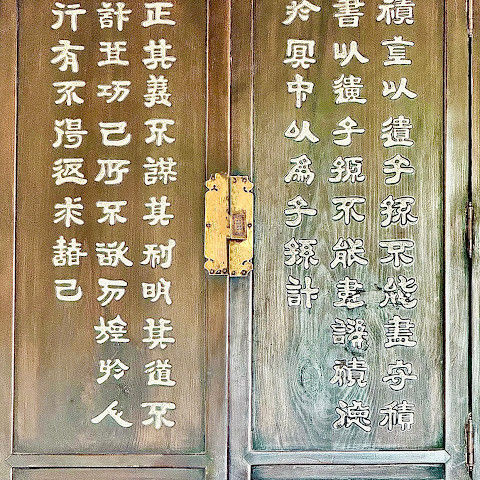 積金以遺子孫不能盡守積
書以遺子孫不能盡讀積德
於冥中以為子孫計
正其義不謀其利明其道不
計其功己所不欲勿施於人
行有不得返求諸己